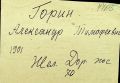 Горин
Александр Тимофеевич
1901
Жел. Дор. пос
70